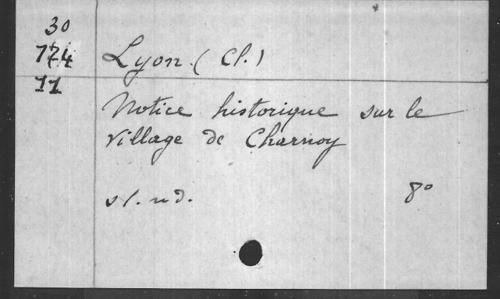 30
774
11
Lyon (Cl.)
Notice historique sur le
village de Charnoy
s l. n d.
8°